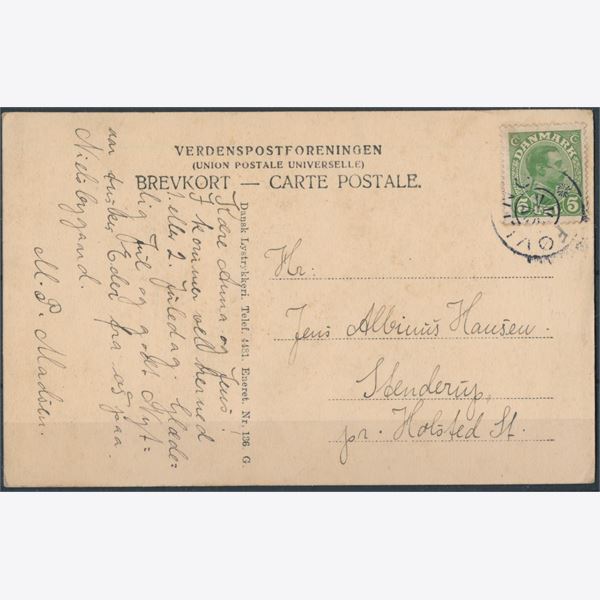 VERDENSPOSTFORENINGEN
(UNION POSTALE UNIVERSELLE)
BREVKORT — CARTE POSTALE.
DANMARK
5 5
Hr:
Jens Albinus Hansen.
Stenderup,
pr. Holsted St.
Dansk Lystrykkeri. Telef. 4481. Eneret. Nr. 136 G.
Kære Anna og Jens!
I kommer vel herned
1. eller 2. Juledag. Glæde-
lig Jul og godt Nyt-
aar ønskes Eder fra os paa
Nielsbygaard.
M. P. Madsen.